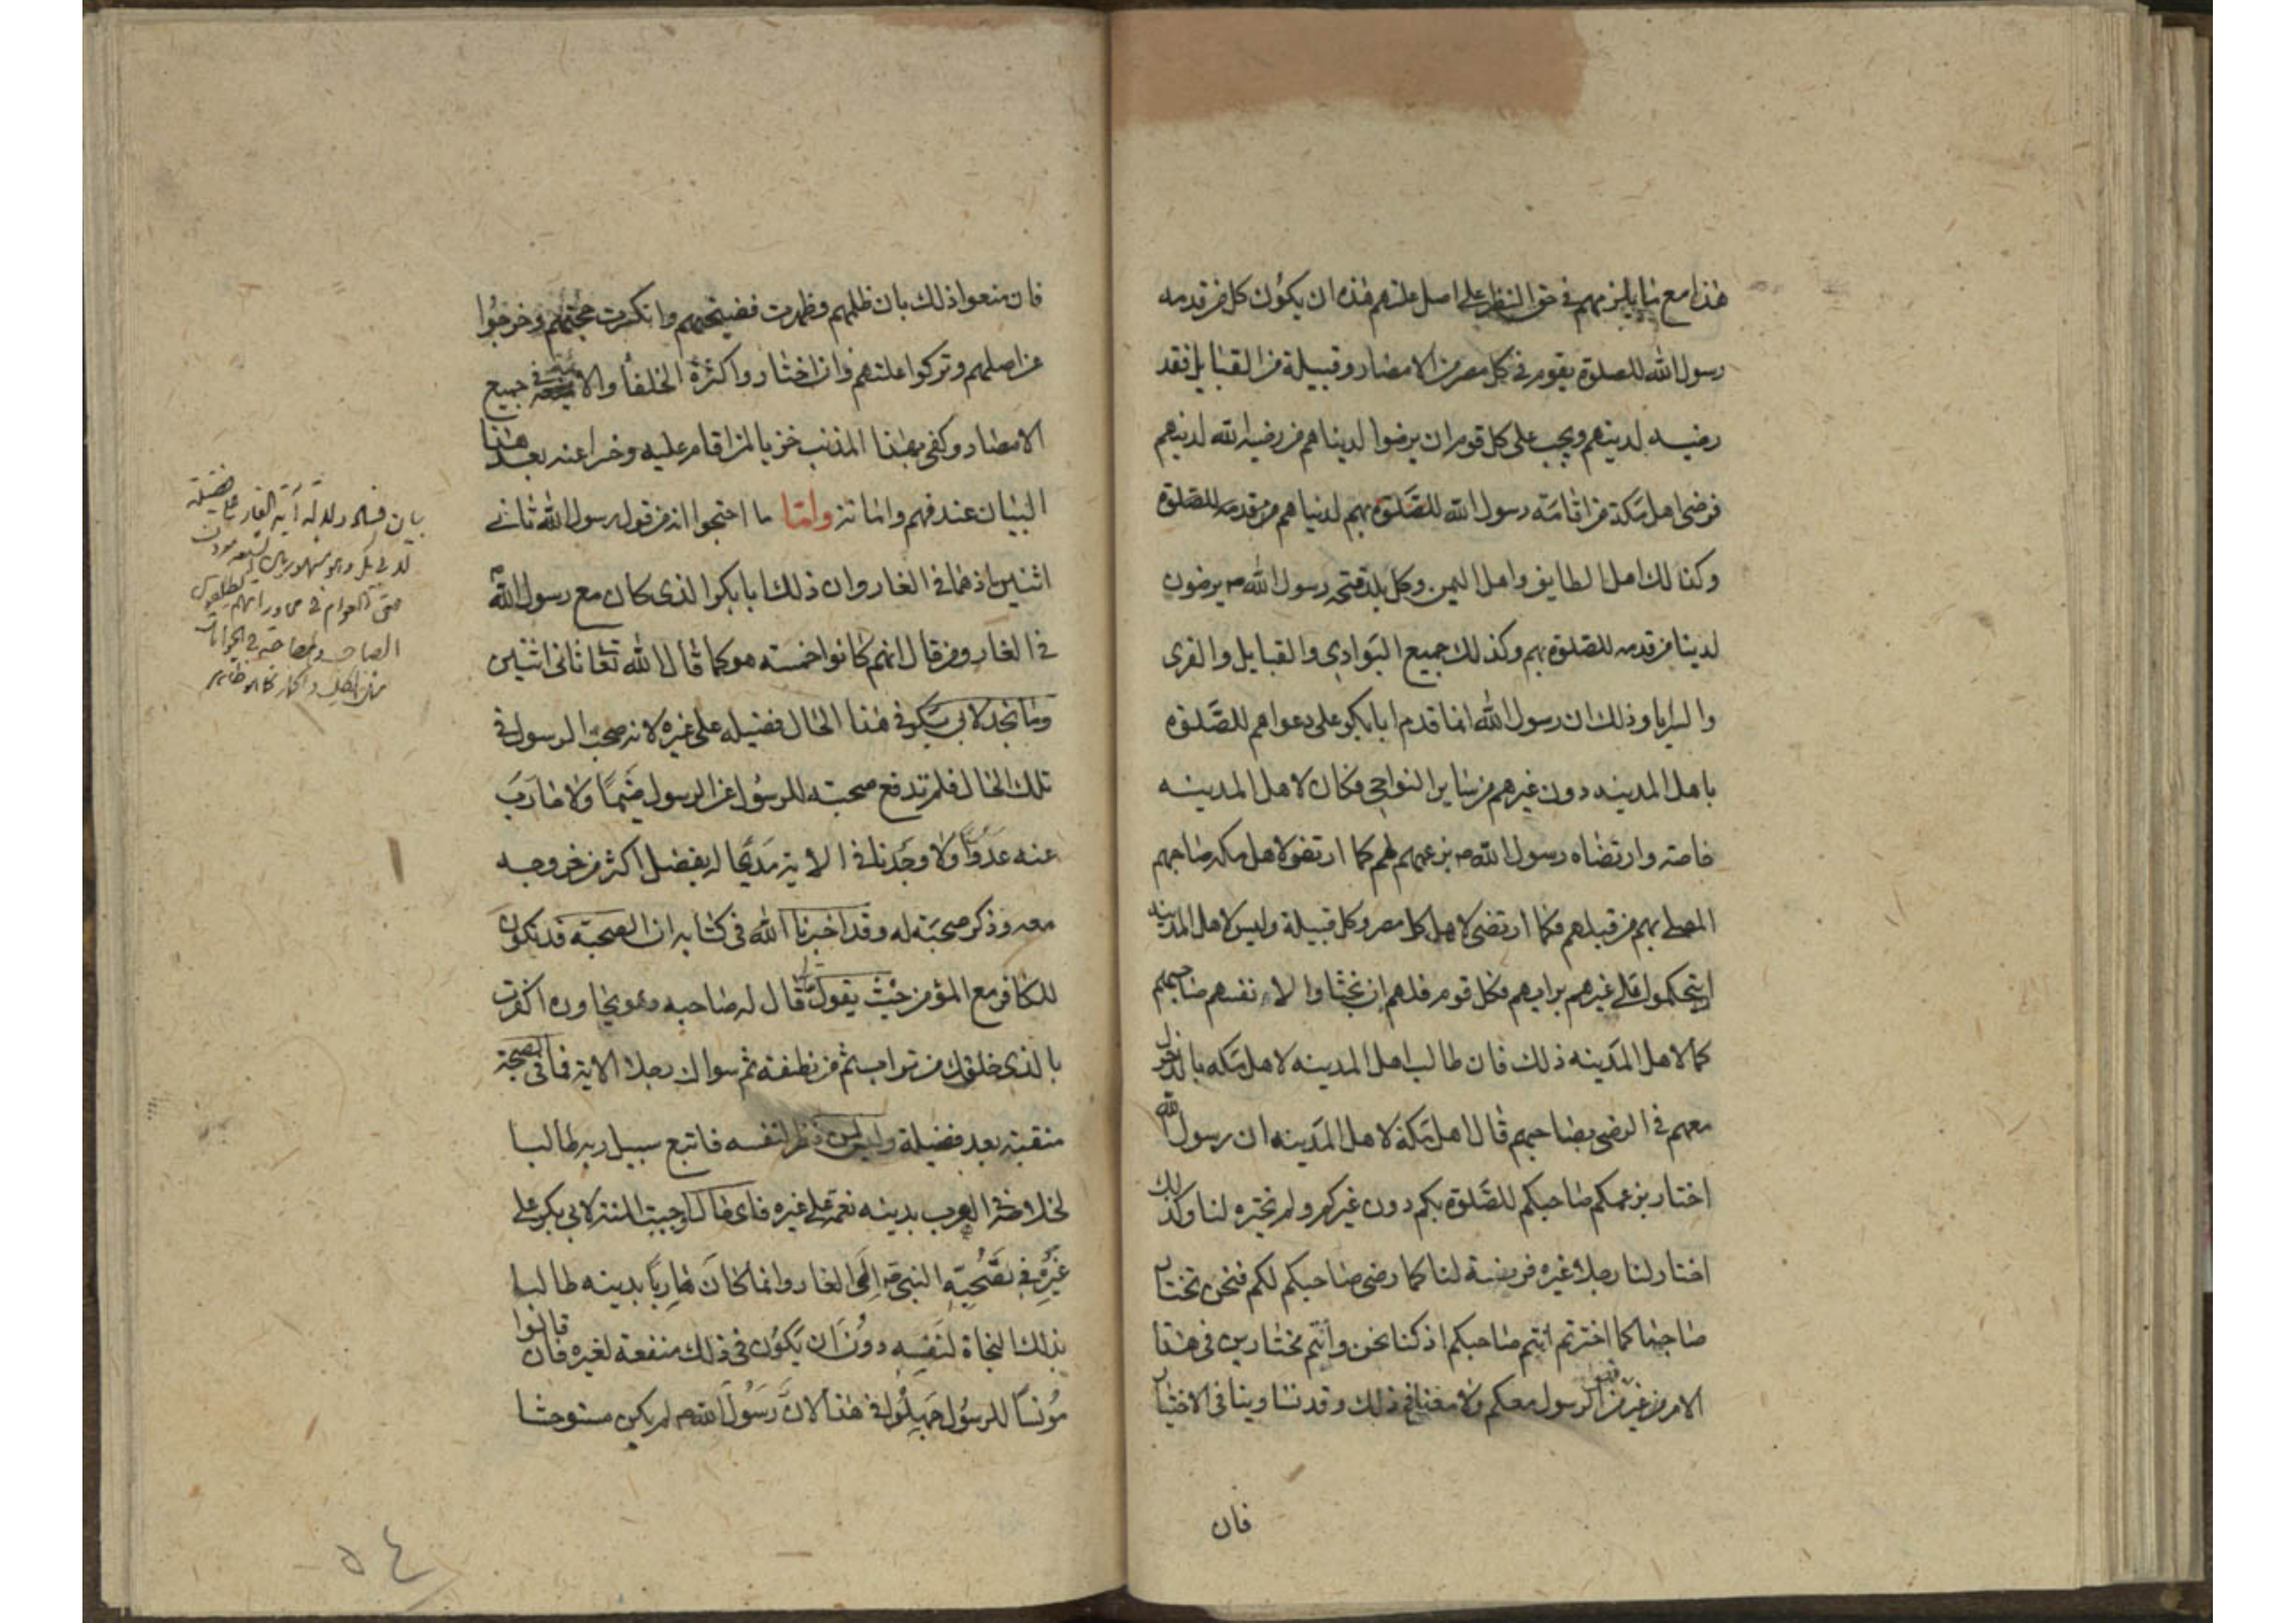 هذا مع ما يلزمهم في حق النظر على اصل علتهم هذه ان يكون كل من قدمه
رسول الله للصلوة بقوم في كل مصر من الامصار وقبيلة من القبايل فقد
رضيه لدينهم ويجب على كل قوم ان يرضوا لدنياهم من رضيه الله لدينهم
فرضى اهل مكة من اقامه رسول الله للصلوة بهم لدنياهم من قدمه للصلوة
وكذلك اهل الطايف واهل اليمن وكل بلد فتحه رسول الله ص يرضون
لدينا من قدمه للصلوة بهم وكذلك جميع البوادي والقبايل والقرى
والسرايا وذلك ان رسول الله انما قدم ابا بكر على دعواهم للصلوة
باهل المدينه دون غيرهم من ساير النواحي فكان لاهل المدينه
خاصة وارتضاه رسول الله ص بزعمهم لهم كما ارتضى لاهل مكه صاحبهم
المصلى بهم من قبلهم فكما ارتضى لاهل كل مصر وكل قبيلة وليس لاهل المدينه
ان يتحكموا على غيرهم برايهم فكل قوم فلهم ان يختاروا لانفسهم صاحبهم
كما لاهل المدينه ذلك فان طالب اهل المدينه لاهل مكه بالدخول
معهم في الرضى بصاحبهم قال اهل مكة لاهل المدينه ان رسول الله
اختار بزعمكم صاحبكم للصلوة بكم دون غيركم ولم يختره لنا وكذلك
اختار لنا رجلا غيره فريضة لنا كما رضى صاحبكم لكم فنحن نختار
صاحبنا كما اخترتم انتم صاحبكم اذ كنا نحن وانتم مختارين في هذا
الامر من غير الرسول معكم ولا معنا في ذلك وقد تساوينا في الاختيار
فان
فان منعوا ذلك بان ظلمهم وظهرت فضيحتهم وانكسرت حجتهم وخرجوا
عن اصلهم وتركوا علتهم وان اختاروا كثرة الخلفا والائمة في جميع
الامصار وكفى بهذا المذهب خزيا لمن اقام عليه وخسرا عنه بعد هذا
البيان عند فهم واما تز واما ما احتجوا انه من قول رسول الله ثاني
اثنين اذ هما في الغار وان ذلك ابا بكر الذي كان مع رسول الله ص
في الغار ومن قال انهم كانوا خمسه هو كما قال الله تعا ثاني اثنين
وما نجد لابي بكر في هذا الحال فضيله على غيره لانه صحب الرسول في
تلك الحال فلم تدفع صحبته للرسول عن الرسول ضيما ولا حارب
عنه عدوا ولا وجدنا في الاية مدحا له بفضل اكثر من خروجه
معه وذكر صحبته له وقد اخبرنا الله في كتابه ان الصحبة قد تكون
للكافر مع المؤمن حيث يقول قال له صاحبه وهو يحاوره اكفرت
بالذي خلقك من تراب ثم من نطفة ثم سواك رجلا الاية فما في الصحبة
منقبة بعد فضيلة وليس نظر لنفسه فاتبع سبيل ربه طالبا
لخلاصه الهرب بدينه نعمة على غيره فاي حال اوجبت المنة لابي بكر على
غيره في صحبة النبي ص الى الغار وانما كان هاربا بدينه طالبا
بذلك لنجاة لنفسه دون ان يكون في ذلك منفعة لغيره فان قالوا
مونسا للرسول جهلوا في هذا لان رسول الله ص لم يكن مستوحشا
بيان فساد دلالة آية الغار على فضيلة
٥٤